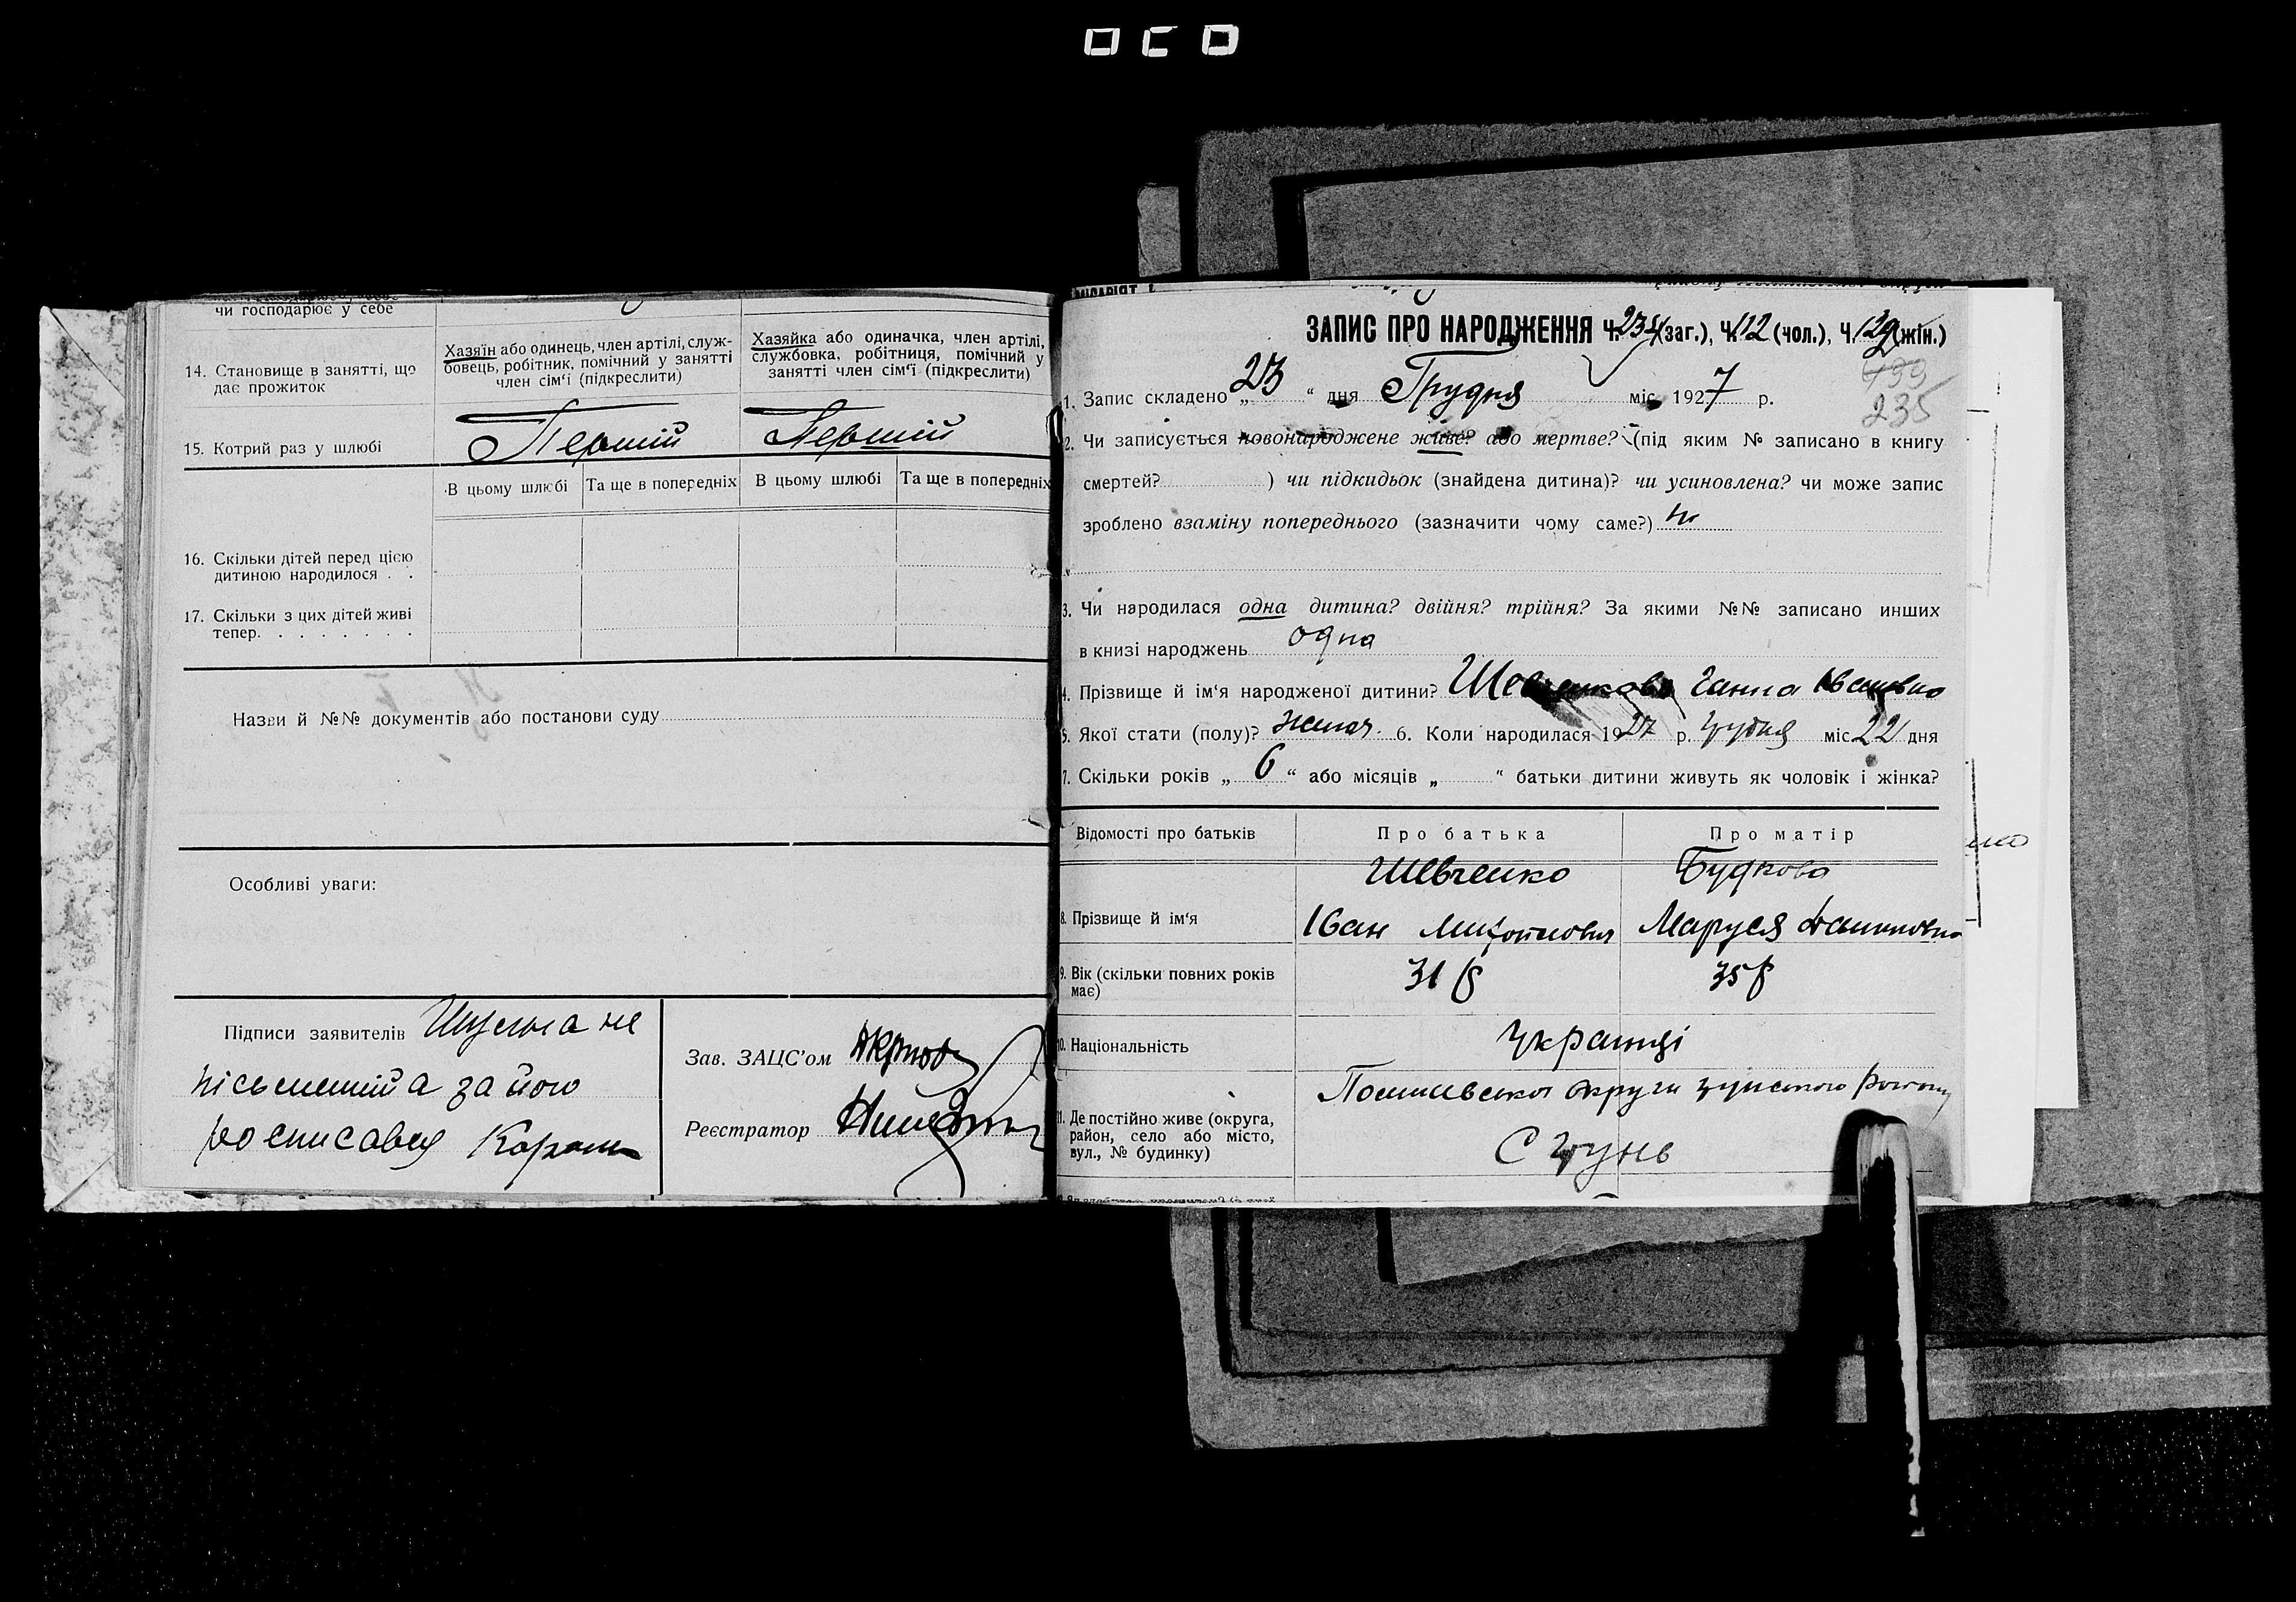 чи господарює у себе
14. Становище в занятті, що дає прожиток
Хазяїн або одинець, член артілі, служ-
бовець, робітник, помічний у занятті
член сім‘ї (підкреслити)
Хазяйка або одиначка, член артілі,
службовка, робітниця, помічний у
занятті член сім‘ї (підкреслити)
15. Котрий раз у шлюбі Першій Першій
В цьому шлюбі Та ще в попередніх В цьому шлюбі Та ще в попередніх
16. Скільки дітей перед цією
дитиною народилося . .
17. Скільки з цих дітей живі
тепер. . . . . . . .
Назви й №№ документів або постанови суду
Особливі уваги:
Підписи заявителів не
письменній а за його
росписався
Зав. ЗАЦС’ом
Реєстратор
ЗАПИС ПРО НАРОДЖЕННЯ Ч. 234 (заг.), Ч. 112 (чол.), Ч. 122 (жін.)
235
1. Запис складено „ 23 “ дня Грудня міс. 1927 р.
2. Чи записується новонароджене живе? або мертве? (під яким № записано в книгу
смертей? ) чи підкидьок (знайдена дитина)? чи усиновлена? чи може запис
зроблено взаміну попереднього (зазначити чому саме?)
3. Чи народилася одна дитина? двійня? трійня? За якими №№ записано инших
в книзі народжень одна
4. Прізвище й ім‘я народженої дитини? Ганна Івановна
5. Якої стати (полу)? жіноч. 6. Коли народилася 1927 р. грудня міс. 22 дня
7. Скільки років „ 6 “ або місяців „ “ батьки дитини живуть як чоловік і жінка?
Відомості про батьків Про батька Про матір
8. Прізвище й ім‘я
Шевченко
Іван
Будкова
Маруся
9. Вік (скільки повних років
має)
31 р 35 р
10. Національність Українці
11. Де постійно живе (округа,
район, село або місто,
вул., № будинку)
округи грунського району
С Грунь